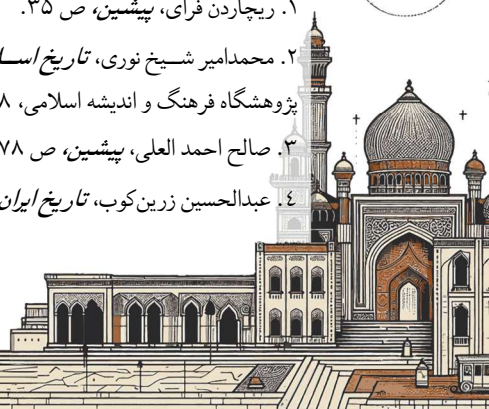 ۱. ریچاردن فرای، پیشین، ص ۳۵.
۲. محمدامیر شیخ نوری، تاریخ اسلا
پژوهشگاه فرهنگ و اندیشه اسلامی، ۸
۳. صالح احمد العلی، پیشین، ص ۷۸
٤. عبدالحسین زرین‌کوب، تاریخ ایران